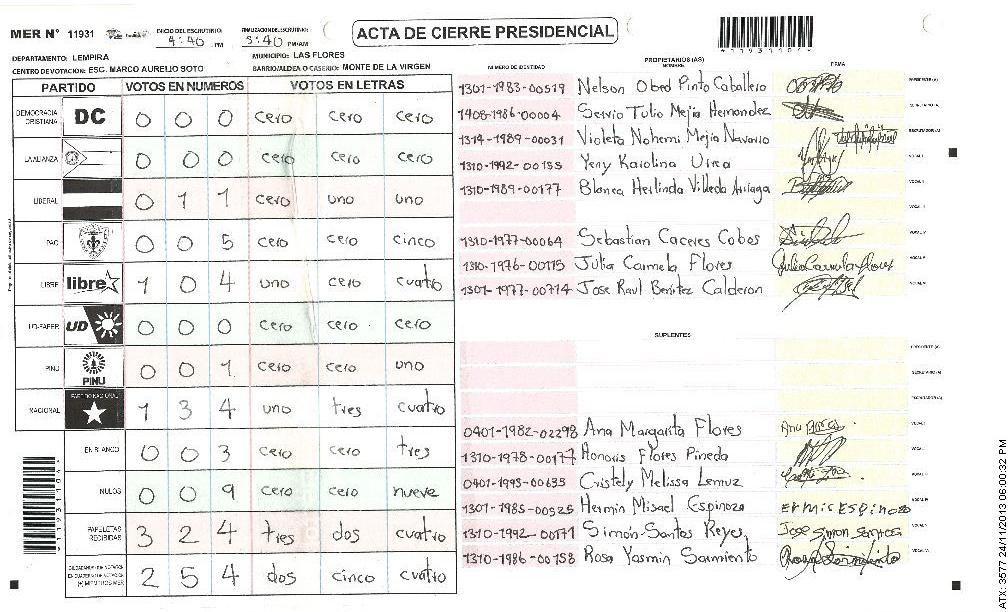 MER N° 11931
INICIO DEL ESCRUTINIO:
4:40 PM
FINALIZACION DEL ESCRUTINIO:
5:40 PM/AM
ACTA DE CIERRE PRESIDENCIAL
11931104
DEPARTAMENTO: LEMPIRA
MUNICIPIO: LAS FLORES
CENTRO DE VOTACION: ESC. MARCO AURELIO SOTO
BARRIO/ALDEA O CASERIO: MONTE DE LA VIRGEN
PARTIDO VOTOS EN NUMEROS VOTOS EN LETRAS
DEMOCRACIA CRISTIANA DC 0 0 0 cero cero cero
LA ALIANZA 0 0 0 cero cero cero
LIBERAL 0 1 1 cero uno uno
PAC 0 0 5 cero cero cinco
LIBRE libre 1 0 4 uno cero cuatro
UD-FAPER UD 0 0 0 cero cero cero
PINU PINU 0 0 1 cero cero uno
NACIONAL PARTIDO NACIONAL 1 3 4 uno tres cuatro
EN BLANCO 0 0 3 cero cero tres
NULOS 0 0 9 cero cero nueve
PAPELETAS RECIBIDAS 3 2 4 tres dos cuatro
(+) MIEMTROS MER 2 5 4 dos cinco cuatro
PROPIETARIOS (AS)
NUMERO DE IDENTIDAD NOMBRE FIRMA
1301-1983-00519 Nelson Obed Pinto Caballero
1408-1986-00004 Servio Tulio Mejia Hernandez
1314-1989-00031 Violeta Nohemi Mejia Navarro
1310-1992-00135 Yeny Karolina Urea
1310-1989-00177 Blanca Herlinda Villeda Arriaga
1310-1977-00064 Sebastian Caceres Cobos
1310-1976-00115 Julia Carmela Flores Julia Carmela Flores
1301-1977-00714 Jose Raul Benitez Calderon
SUPLENTES
0401-1982-02298 Ana Margarita Flores
1310-1978-00177 Honoris Flores Pineda
0401-1993-00635 Cristely Melissa Lemuz
1301-1985-00525 Hermin Misael Espinoza Ermis Espinoza
1310-1992-00171 Simón Santos Reyes Jose Simon Santos
1310-1986-00158 Rosa Yasmin Sarmiento
ATX: 3577 24/11/2013 06:00:32 PM